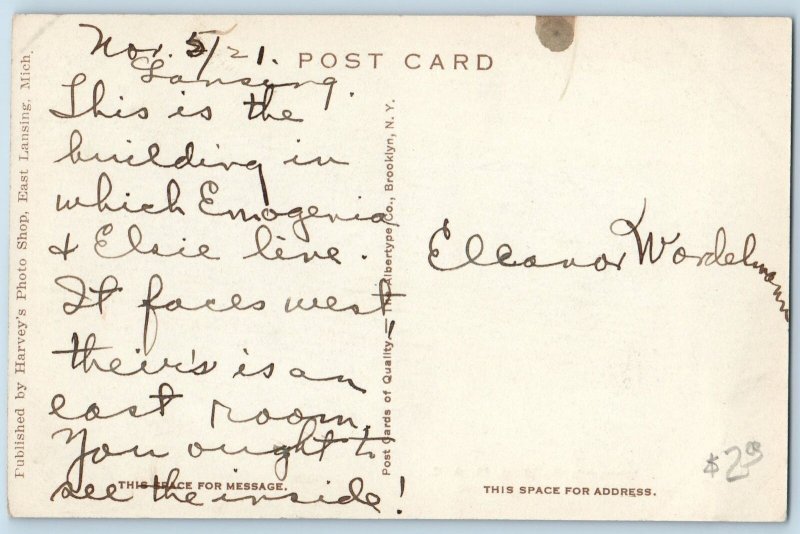 Nov. 5/21.
Lansing.
This is the
building in
which Emogenia
& Elsie live.
It faces west,
their's is an
east room.
You ought to
see the inside!
POST CARD
Eleanor Wordelmann
Published by Harvey's Photo Shop, East Lansing, Mich.
Post Cards of Quality — The Albertype Co., Brooklyn, N. Y.
THIS SPACE FOR MESSAGE.
THIS SPACE FOR ADDRESS.
$2.00